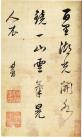 百里湖光開
鏡一山雲氣晃
人衣